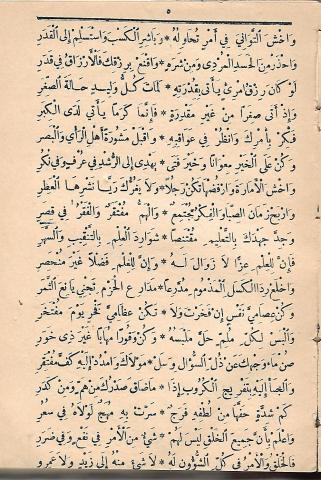 ٥
وَاخْشَ التَّوَانِيَ فِي أَمْرٍ تُحَاوِلُهُ * وَبَاشِرِ الْكَسْبَ وَاسْتَسْلِمْ إِلَى الْقَدَرِ
وَاحْذَرْ مِنَ الْحَسَدِ الْمُرْدِي وَمِنْ شَرَهٍ * وَاقْنَعْ بِرِزْقِكَ فَالْأَرْزَاقُ فِي قَدَرِ
لَوْ كَانَ رِزْقُ امْرِئٍ يَأْتِي بِقُدْرَتِهِ * لَمَاتَ كُلُّ وَلِيدٍ حَالَةَ الصِّغَرِ
وَإِذْ أَتَى صِغَرًا مِنْ غَيْرِ مَقْدِرَةٍ * فَإِنَّمَا كَرَمًا يَأْتِي لَدَى الْكِبَرِ
فَكِّرْ بِأَمْرِكَ وَانْظُرْ فِي عَوَاقِبِهِ * وَاقْبَلْ مَشُورَةَ أَهْلِ الرَّأْيِ وَالْبَصَرِ
وَكُنْ عَلَى الْخَيْرِ مِعْوَانًا وَخَيْرَ فَتًى * يَهْدِي إِلَى الرُّشْدِ فِي عُرْفٍ وَفِي نُكُرِ
وَاخْشَ الْإِمَارَةَ وَارْفُضْهَا تَكُنْ رَجُلًا * وَلَا يَغُرُّكَ رَيَّا نَشْرِهَا الْعَطِرِ
وَارْبَحْ زَمَانَ الصِّبَا وَالْفِكْرُ مُجْتَمِعٌ * وَالْهَمُّ مُفْتَقِرٌ وَالْفَقْرُ فِي قِصَرِ
وَجِدَّ جَهْدَكَ بِالتَّعْلِيمِ مُقْتَنِصًا * شَوَارِدَ الْعِلْمِ بِالتَّنْقِيبِ وَالسَّهَرِ
فَإِنَّ لِلْعِلْمِ عِزًّا لَا زَوَالَ لَهُ * وَإِنَّ لِلْعِلْمِ فَضْلًا غَيْرَ مُنْحَصِرِ
وَاخْلَعْ رِدَا الْكَسَلِ الْمَذْمُومِ مُدَّرِعًا * مَدَارِعَ الْحَزْمِ تَجْنِي يَانِعَ الثَّمَرِ
وَكُنْ عِصَامِيَّ نَفْسٍ إِنْ فَخَرْتَ وَلَا * تَكُنْ عِظَامِيَّ فَخْرٍ يَوْمَ مُفْتَخَرِ
وَالْبَسْ لِكُلِّ مُلِمٍّ حَلَّ مَلْبَسَهُ * وَكُنْ وَقُورًا مُهَابًا غَيْرَ ذِي خَوَرِ
صُنْ مَاءَ وَجْهِكَ عَنْ ذُلِّ السُّؤَالِ وَسَلْ * مَوْلَاكَ وَامْدُدْ إِلَيْهِ كَفَّ مُفْتَقِرِ
وَالْجَأْ إِلَيْهِ بِتَفْرِيجِ الْكُرُوبِ إِذَا * مَا ضَاقَ صَدْرُكَ مِنْ هَمٍّ وَمِنْ كَدَرِ
كَمْ شِدَّةٍ حَفَّهَا مِنْ لُطْفِهِ فَرَجٌ * سَرَتْ بِهِ مُهَجٌ لَوْلَاهُ فِي سُعُرِ
وَاعْلَمْ بِأَنَّ جَمِيعَ الْخَلْقِ لَيْسَ لَهُمْ * شَيْءٌ مِنَ الْأَمْرِ فِي نَفْعٍ وَفِي ضَرَرِ
فَالْخَلْقُ وَالْأَمْرُ فِي كُلِّ الشُّؤُونِ لَهُ * لَا شَيْءَ مِنْهُ إِلَى زَيْدٍ وَلَا عَمْرِو